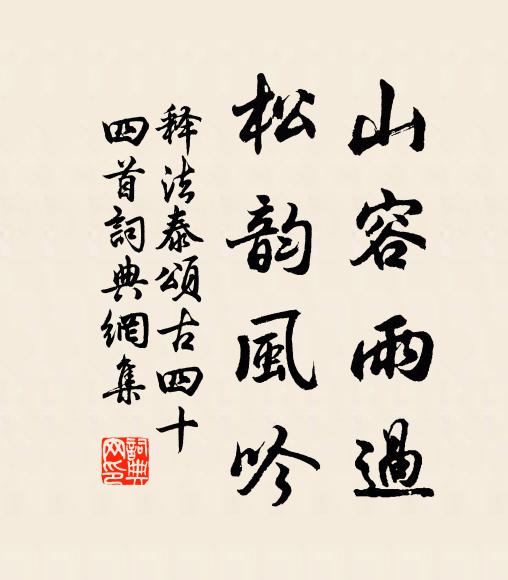 山容雨過
松韵風吟
释法泰頌古四十
四首詞典網集
詞典
网印